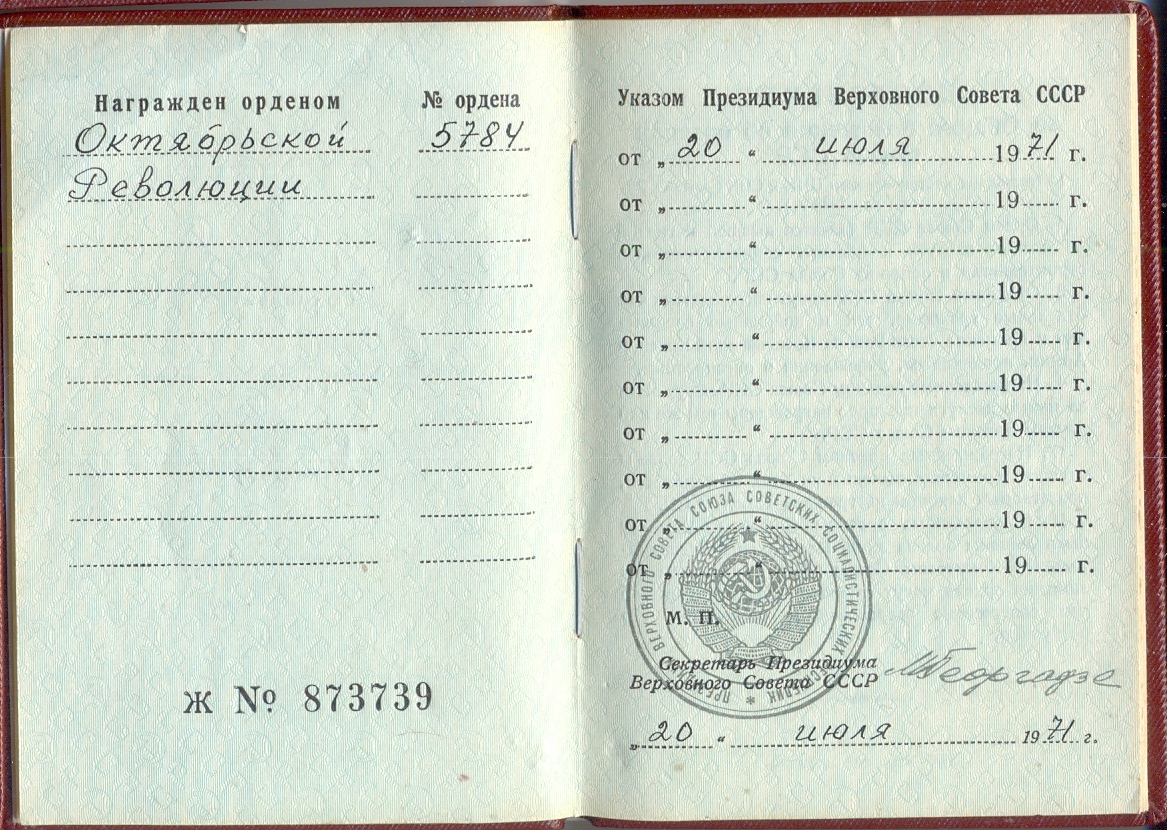 Награжден орденом № ордена
Октябрьской 5784
Революции
Ж № 873739
Указом Президиума Верховного Совета СССР
от „20“ июля 1971 г.
от „ “ 19 г.
от „ “ 19 г.
от „ “ 19 г.
от „ “ 19 г.
от „ “ 19 г.
от „ “ 19 г.
от „ “ 19 г.
от „ “ 19 г.
от „ “ 19 г.
ВЕРХОВНОГО СОВЕТА СОЮЗА СОВЕТСКИХ СОЦИАЛИСТИЧЕСКИХ
М. П.
Секретарь Президиума
Верховного Совета СССР МГеоргадзе
„20“ июля 1971 г.